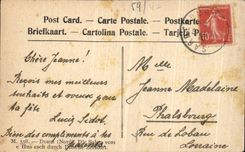 Post Card. — Carte Postale. — Postkarte
Briefkaart. — Cartolina Postale. — Tarjeta Postal
Chère Jeanne!
Reçois mes meilleurs
souhaits et vœux pour
ta fête
Lucy
Bien des compliments à tes
Melle
Jeanne Madelaine
Phalsbourg
Rue de Lobau
Lorraine
M. 558. — Douai (Nord)